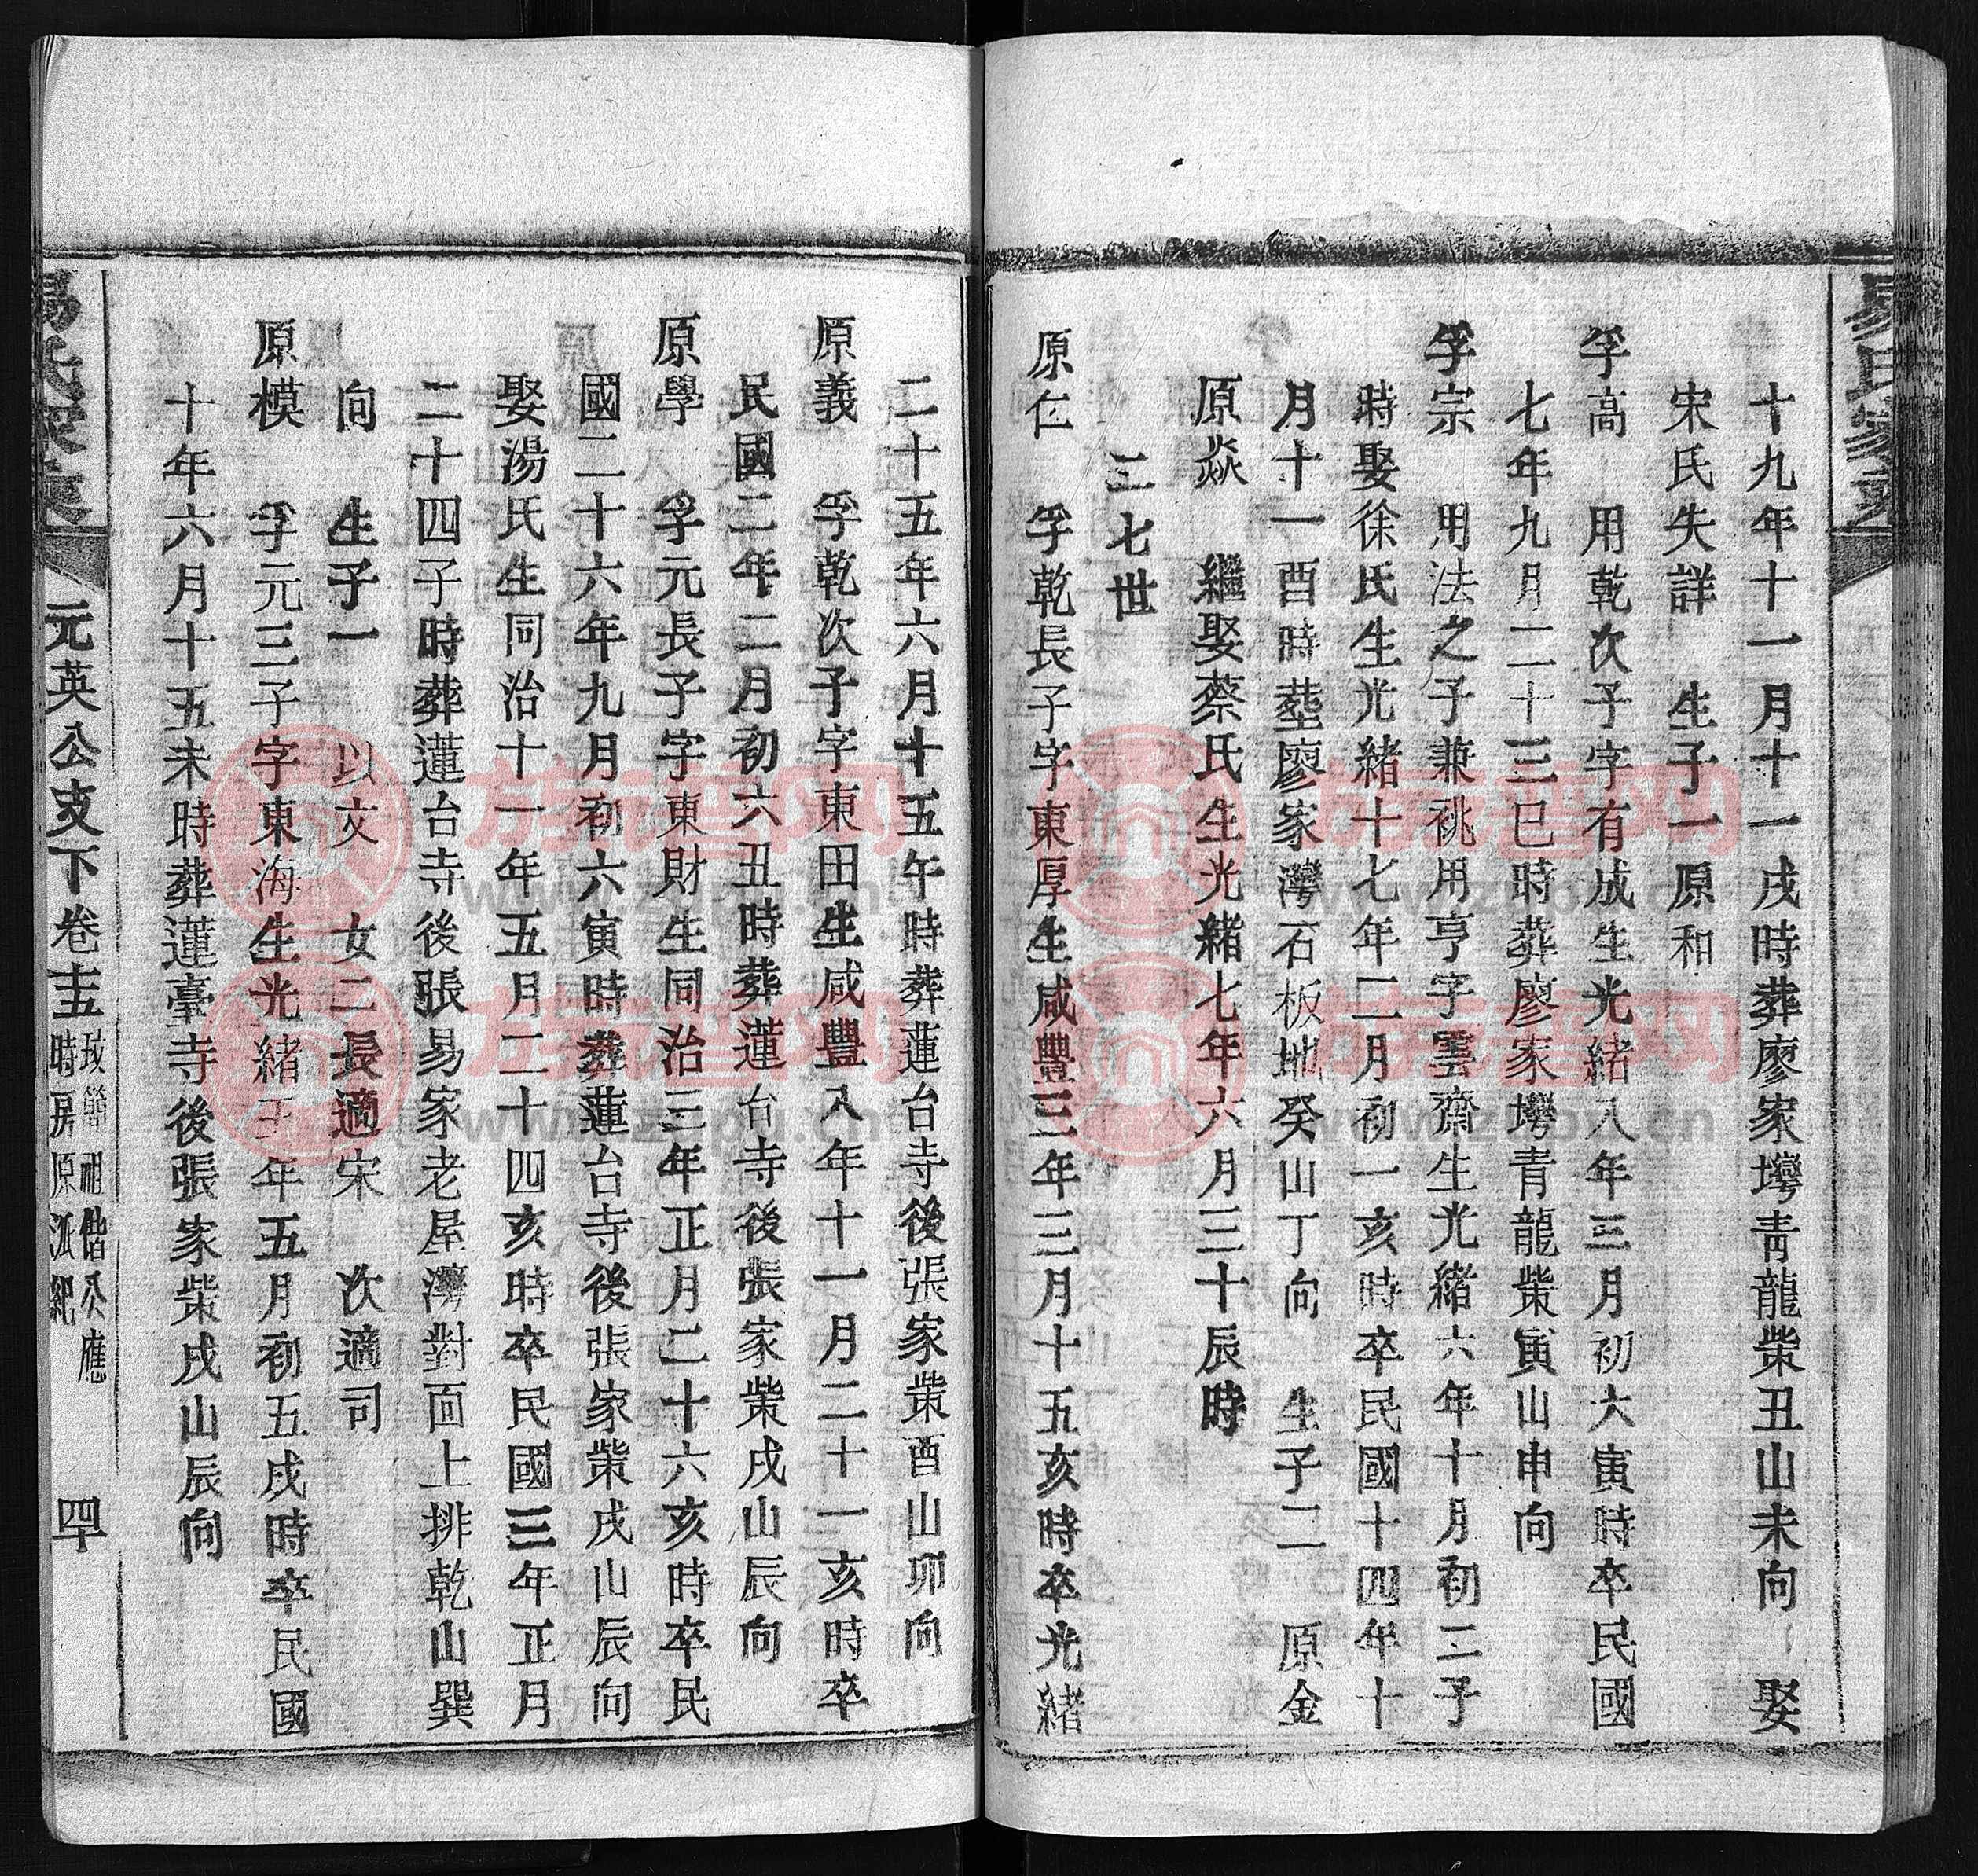 易氏家乘
十九年十一月十一戌時葬廖家塆青龍柴丑山未向 娶
宋氏失詳 生子一原和
孚高 用乾次子字有成生光緒八年三月初六寅時卒民國
七年九月二十三巳時葬廖家塆青龍柴寅山申向
孚宗 用法之子兼祧用亨字雲齋生光緒六年十月初二子
時娶徐氏生光緒十七年二月初一亥時卒民國十四年十
月十一酉時塟廖家灣石板地癸山丁向 生子二 原金
原焱 繼娶蔡氏生光緒七年六月三十辰時
三七世
原仁 孚乾長子字東厚生咸豐三年三月十五亥時卒光緒
二十五年六月十五午時葬蓮台寺後張家柴酉山卯向
原義 孚乾次子字東田生咸豐八年十一月二十一亥時卒
民國二年二月初六丑時葬蓮台寺後張家柴戌山辰向
原學 孚元長子字東財生同治三年正月二十六亥時卒民
國二十六年九月初六寅時葬蓮台寺後張家柴戌山辰向
娶湯氏生同治十一年五月二十四亥時卒民國三年正月
二十四子時葬蓮台寺後張易家老屋灣對面上排乾山巽
向 生子一 以文 女二長適宋 次適司
原模 孚元三子字東海生光緒五年五月初五戌時卒民國
十年六月十五未時葬蓮臺寺後張家柴戌山辰向
易氏家乘
元英公支下卷十五
祖偕公應
時房原派紀
四十
族譜网
www.zupu.cn
族譜网
www.zupu.cn
族譜网
www.zupu.cn
族譜网
www.zupu.cn